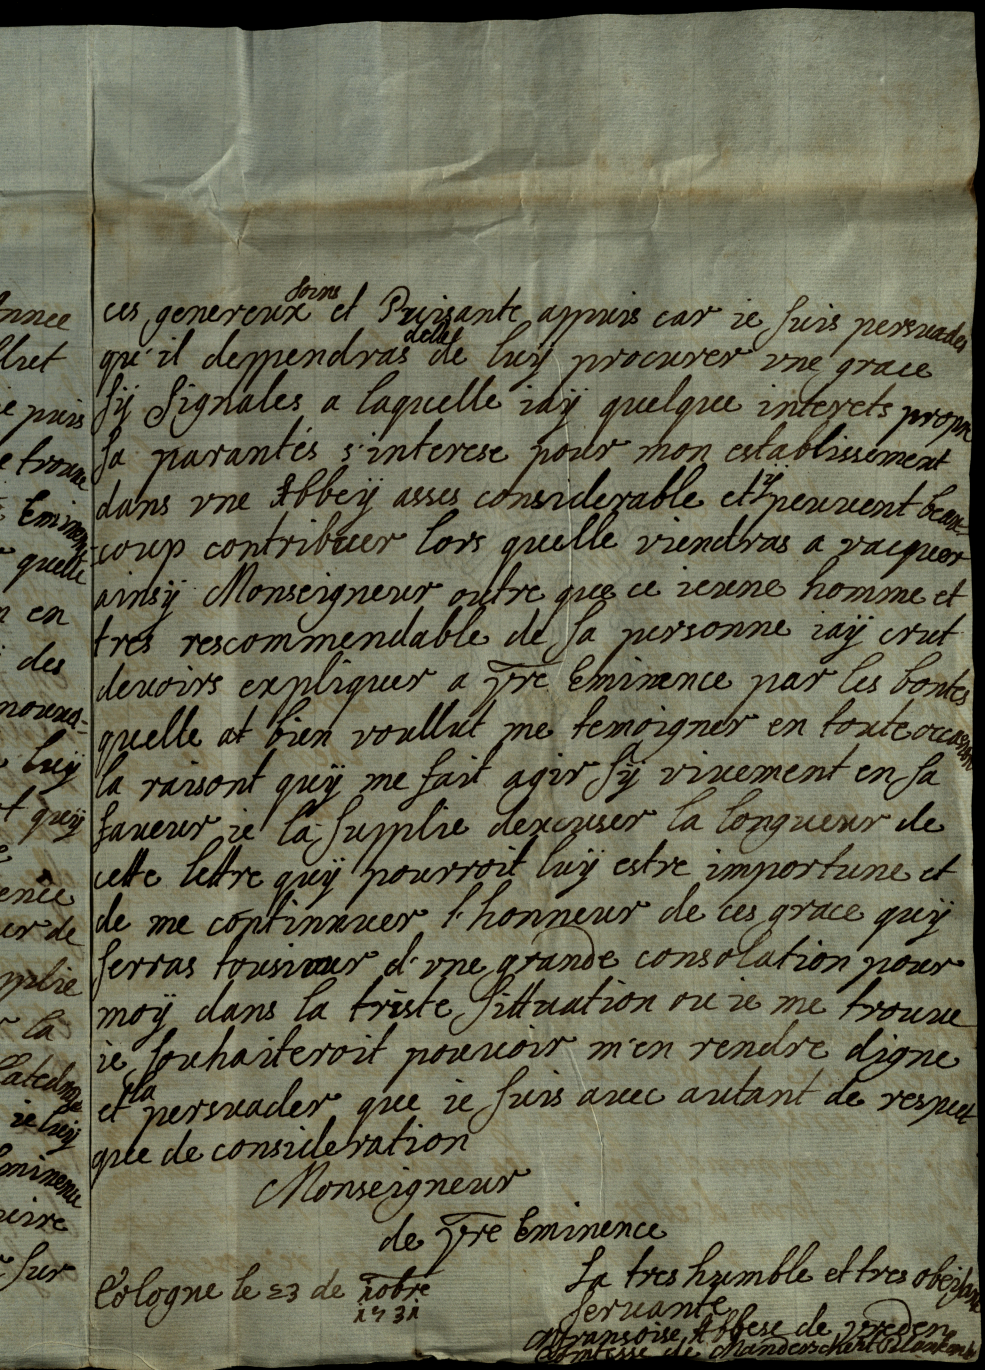 nnee
llut
e puis
e trouue
Emine
quelle
n en
des
luy
t quÿ
ence
er de
pplie
la
ie luÿ
minence
oire
sur
ces genereux soins et Puisante appuis car ie suis persuades
qu'il deppendras delle de luÿ procurer vne grace
sÿ signales a laquelle iaÿ quelque interets propre
sa parantés s'interese pour mon establissement
dans vne Abbeÿ asses considerable et ÿ peuuent beau-
coup contribuer lors quelle viendras a vacquer
ainsÿ Monseigneur outre que ce ieune homme et
tres rescommendable de sa personne iaÿ crut
deuoirs expliquer a vre Eminence par les bontes
quelle at bien voullut me temoigner en toute occasion
la raisont quÿ me fait agir sÿ viuement en sa
faueur ie la supplie dexcuser la longueur de
cette lettre quÿ pourroit luÿ estre importune et
de me continnuer l'honneur de ces grace quÿ
serras tousiour d'vne grande consolation pour
moÿ dans la triste sittuation ou ie me trouue
ie souhaiteroit pouuoir m'en rendre digne
et la persuader que ie suis auec autant de respect
que de consideration
Monseigneur
de vre Eminence
Cologne le 23 de xobre
1731
La tres humble et tres obeisante
seruante
fransoise Abbese de vreden
Comtesse de Manderscheit Blankenh